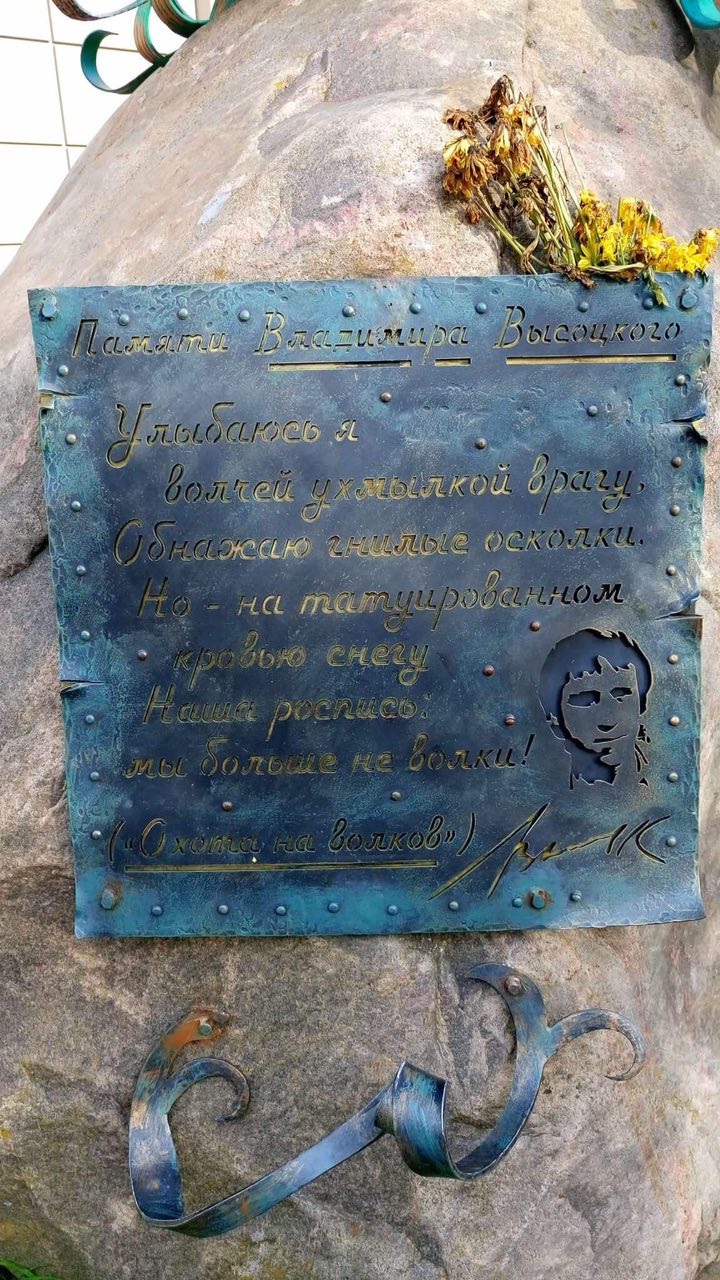 Памяти Владимира Высоцкого
Улыбаюсь я
волчей ухмылкой врагу,
Обнажаю гнилые осколки.
Но - на татуированном
кровью снегу
Наша роспись:
мы больше не волки!
(«Охота на волков»)